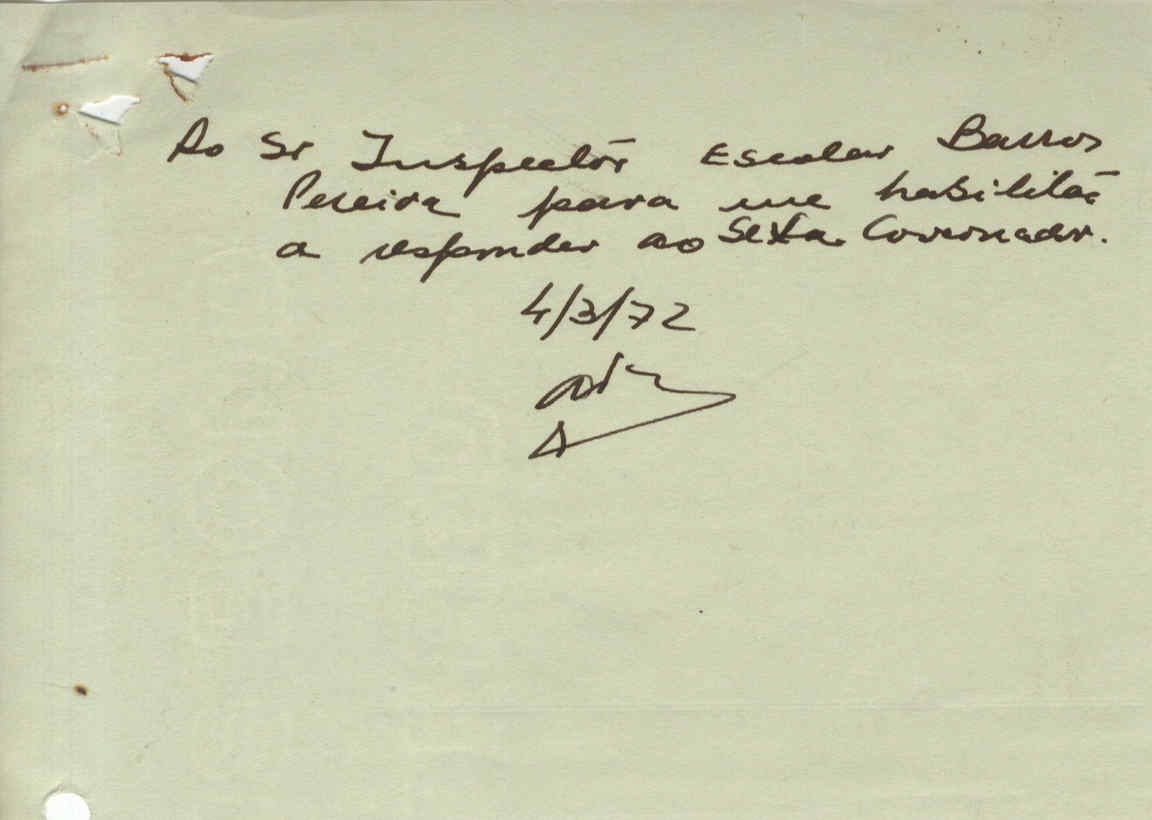 Ao Sr Inspector Escolar Barros
Pereira para me habilitar
a responder ao Governador.
4/3/72